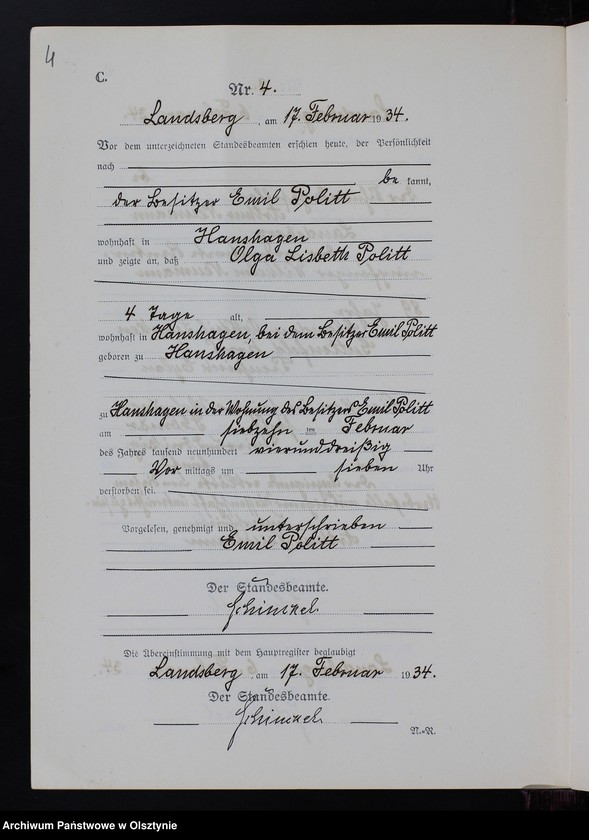 4
C.
Nr. 4.
Landsberg, am 17. Februar 1934.
Vor dem unterzeichneten Standesbeamten erschien heute, der Persönlichkeit
nach
be kannt,
der Besitzer Emil Politt
wohnhaft in Hanshagen
und zeigte an, daß Olga Lisbeth Politt
4 Tage alt,
wohnhaft in Hanshagen, bei dem Besitzer Emil Politt
geboren zu Hanshagen
zu Hanshagen in der Wohnung des Besitzers Emil Politt
am siebzehn ten Februar
des Jahres tausend neunhundert vierunddreißig
Vor mittags um sieben Uhr
verstorben sei.
Vorgelesen, genehmigt und unterschrieben
Emil Politt
Der Standesbeamte.
Schimkel.
Die Übereinstimmung mit dem Hauptregister beglaubigt
Landsberg, am 17. Februar 1934.
Der Standesbeamte.
Schimkel.
N.-N.
Archiwum Państwowe w Olsztynie